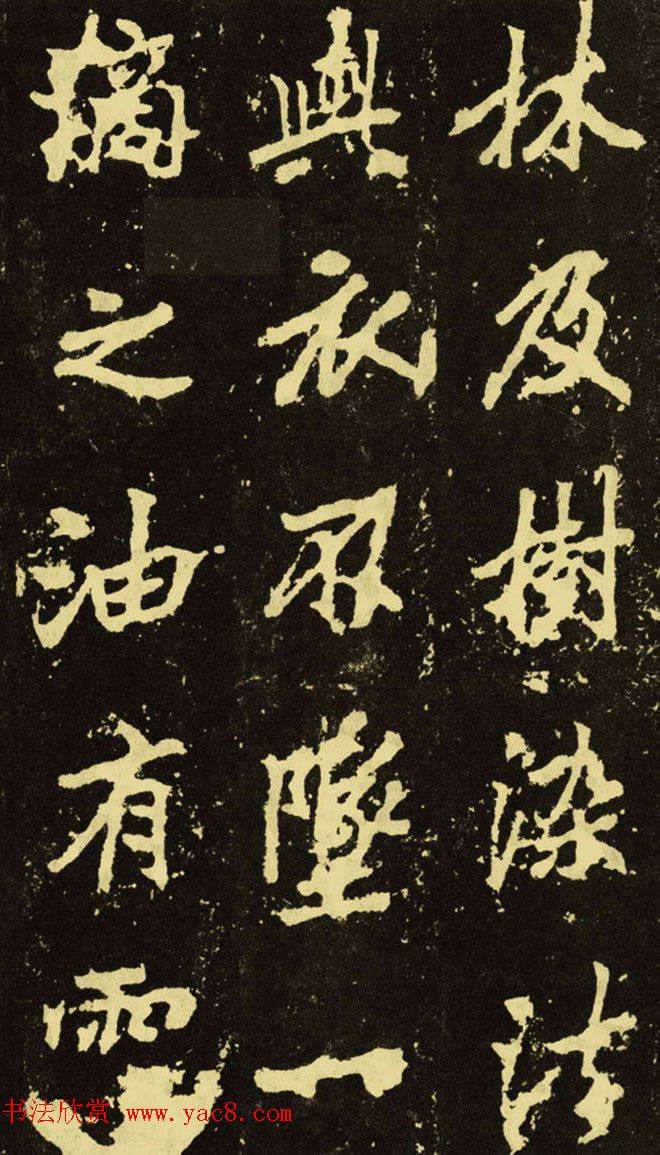 林及樹染法
與衣不墜一
摘之油有
书法欣赏 www.yac8.com